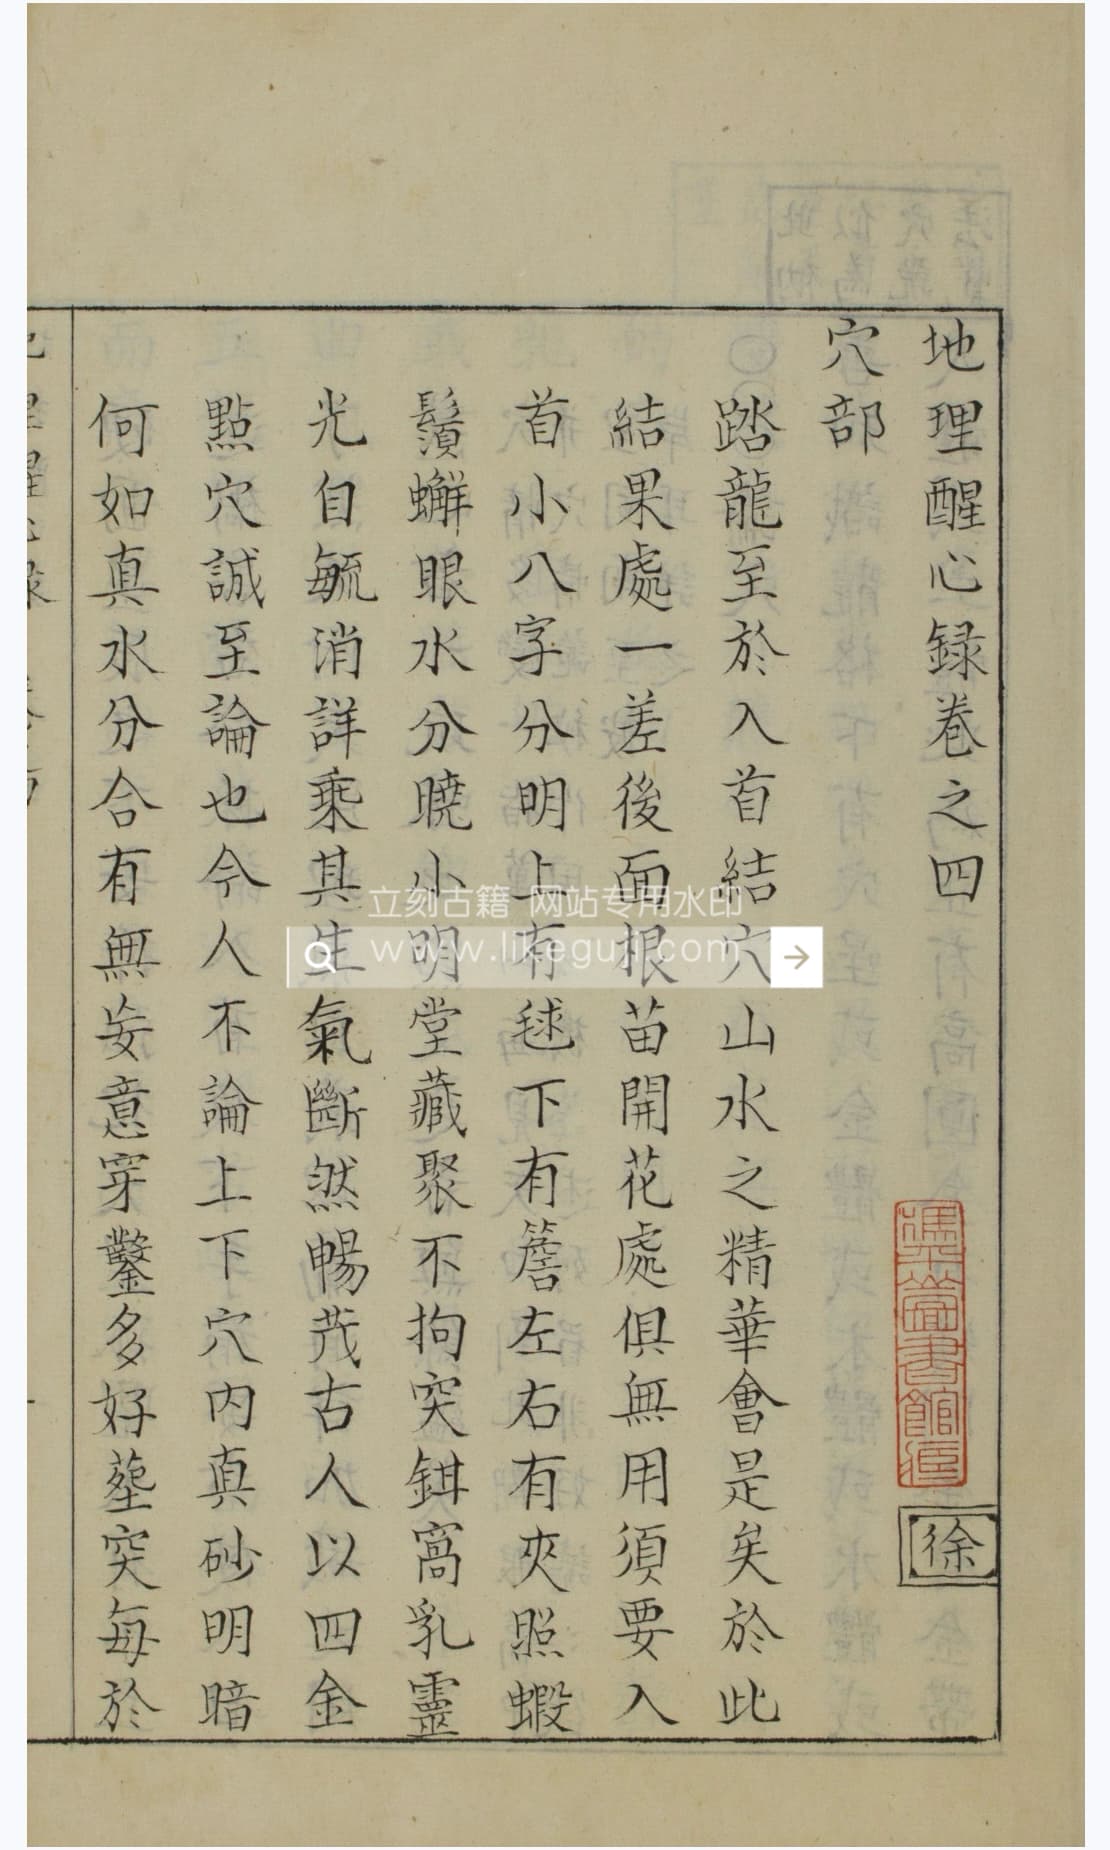 地理醒心録巻之四
徐
穴部
踏龍至於入首結穴山水之精華會是矣於此
結果處一差後面根苗開花處俱無用須要入
首小八字分明上有毬下有簷左右有夾照蝦
鬚蠏眼水分曉小明堂藏聚不拘突鉗窩乳靈
光自毓消詳乘其生氣斷然暢茂古人以四金
點穴誠至論也今人不論上下穴内真砂明暗
何如真水分合有無妄意穿鑿多好塟突每於
立刻古籍 网站专用水印
www.likeguji.com